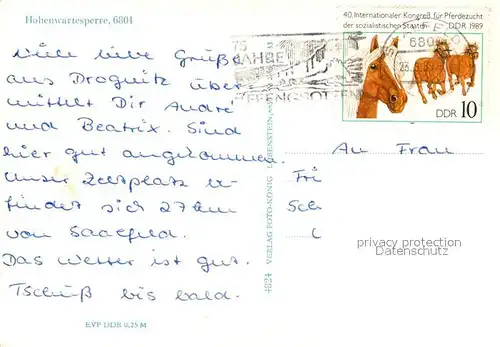 Hohenwartesperre, 6804
40. Internationaler Kongreß für Pferdezucht
der sozialistischen Staaten DDR 1989
75
JAHRE
680
DDR 10
Viele liebe Grüße
aus Drognitz über
mittelt Dir André
und Beatrix. Sind
hier gut angekommen.
Unser Zeltplatz be-
findet sich 27 km
von Saalfeld.
Das Wetter ist gut.
Tschüß bis bald.
An Frau
Fri
Sch
privacy protection
© ansichtskartenlexikon.de
4824 VERLAG FOTO-KÖNIG LOBENSTEIN
EVP DDR 0,25 M